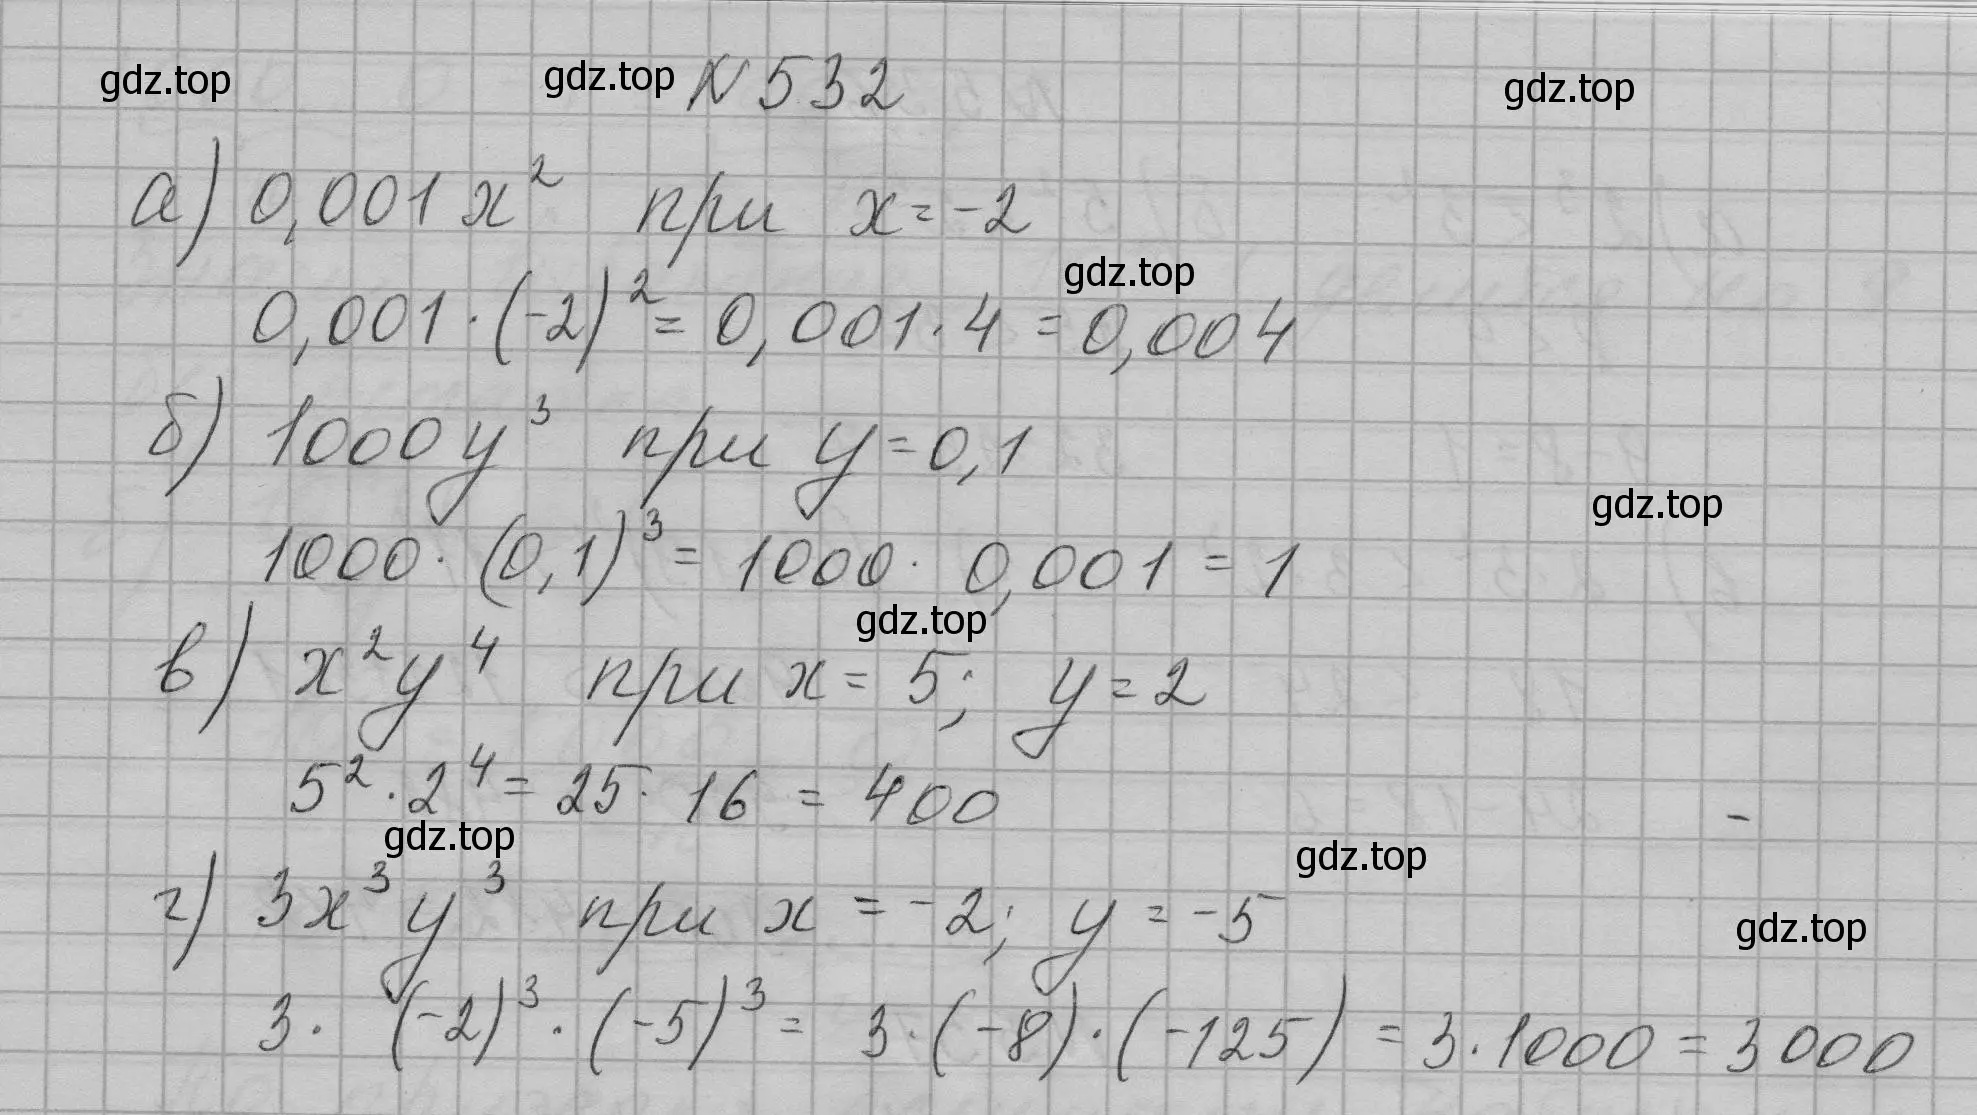 gdz.top gdz.top №532 gdz.top
а) 0,001x² при x=-2
gdz.top
0,001·(-2)²=0,001·4=0,004
б) 1000y³ при y=0,1
gdz.top
1000·(0,1)³=1000·0,001=1
gdz.top
в) x²y⁴ при x=5; y=2
5²·2⁴=25·16=400
gdz.top gdz.top
г) 3x³y³ при x=-2; y=-5
gdz.top
3·(-2)³·(-5)³=3·(-8)·(-125)=3·1000=3000